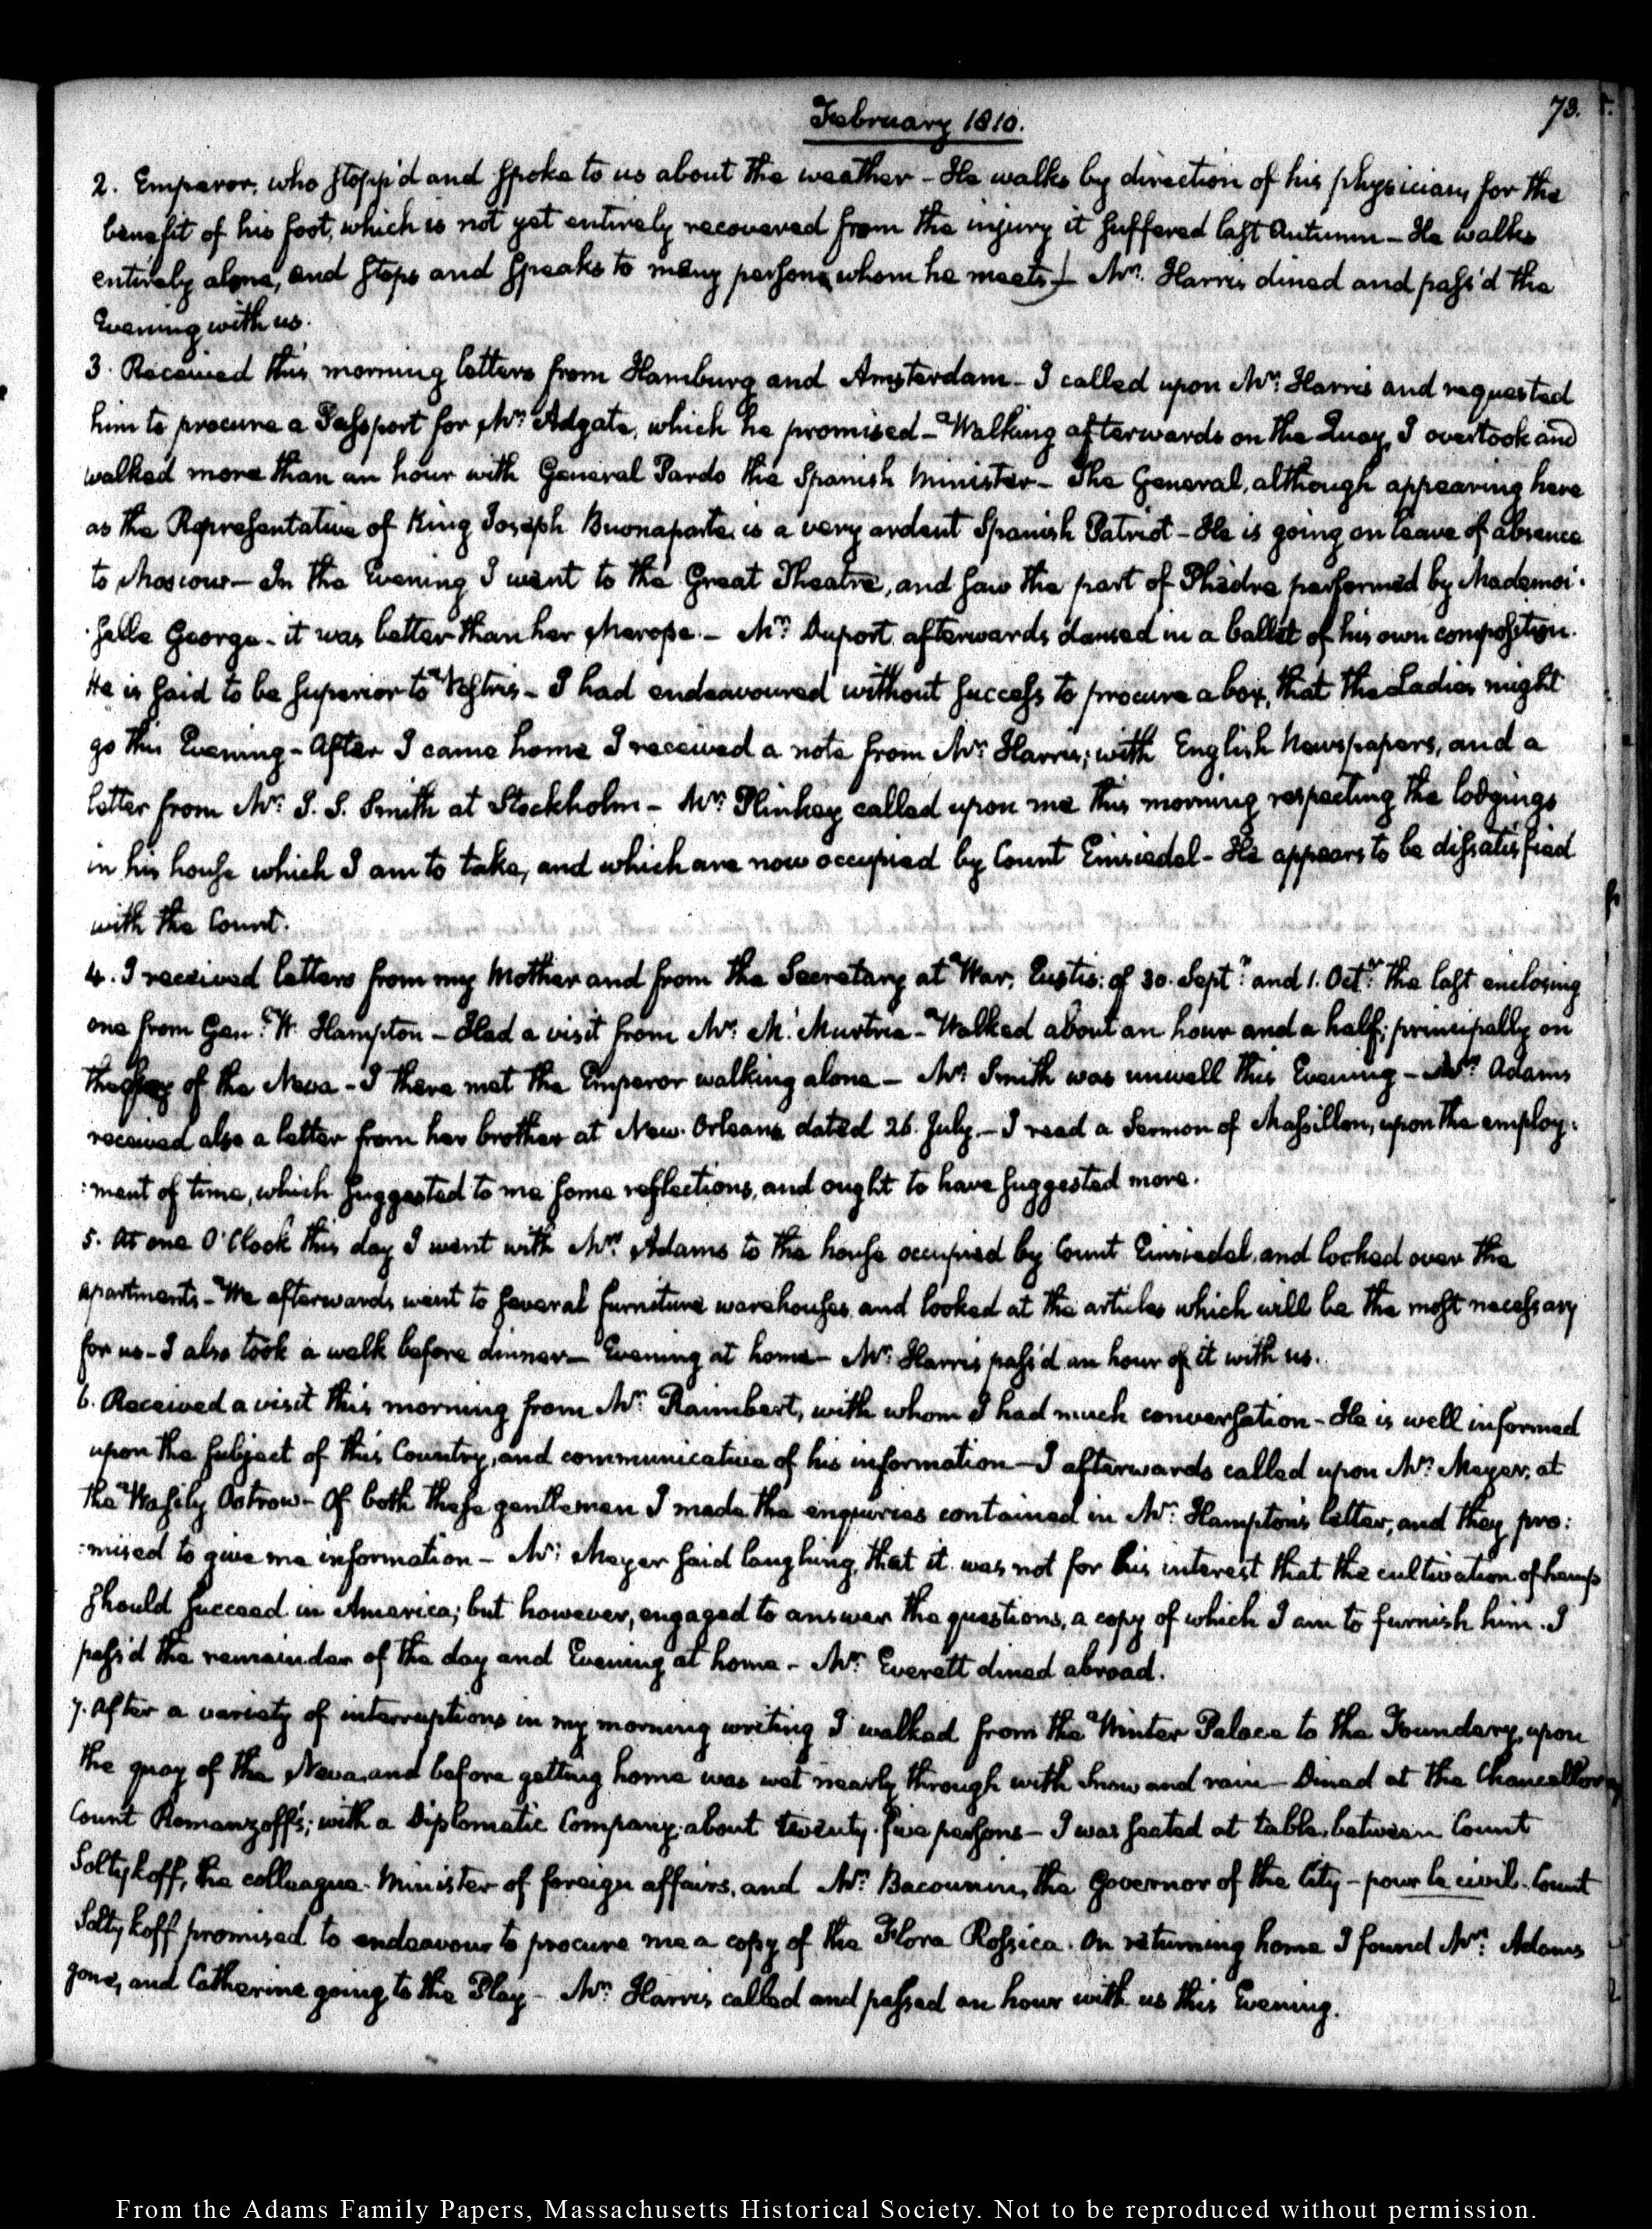 February 1810.
73.
2. Emperor, who stopp'd and spoke to us about the weather – He walks by direction of his physician, for the
benefit of his foot, which is not yet entirely recovered from the injury it suffered last Autumn – He walks
entirely alone, and stops and speaks to many persons whom he meets – Mr. Harris dined and pass'd the
Evening with us.
3. Received this morning letters from Hamburg and Amsterdam – I called upon Mr. Harris and requested
him to procure a Passport for Mr. Adgate, which he promised – Walking afterwards on the Quay, I overtook and
walked more than an hour with General Pardo the Spanish Minister – The General, although appearing here
as the Representative of King Joseph Buonaparte, is a very ardent Spanish Patriot – He is going on leave of absence
to Moscow – In the Evening I went to the Great Theatre, and saw the part of Phèdre performed by Mademoi-
-selle George – it was better than her Merope. – Mr. Duport afterwards danced in a ballet of his own composition.
He is said to be superior to Vestris – I had endeavoured without success to procure a box, that the Ladies might
go this Evening – After I came home I received a note from Mr. Harris; with English Newspapers, and a
letter from Mr. J. S. Smith at Stockholm – Mr. Plinkey called upon me this morning respecting the lodgings
in his house which I am to take, and which are now occupied by Count Einsiedel – He appears to be dissatisfied
with the Count.
4. I received letters from my Mother and from the Secretary at War, Eustis: of 30. Septr. and 1. Octr. the last enclosing
one from Genl. W. Hampton – Had a visit from Mr. McMurtrie – Walked about an hour and a half; principally on
the quay of the Neva – I there met the Emperor walking alone – Mr. Smith was unwell this Evening – Mrs. Adams
received also a letter from her brother at New-Orleans dated 26. July. – I read a Sermon of Massillon, upon the employ:
:ment of time, which suggested to me some reflections, and ought to have suggested more.
5. At one O'Clock this day I went with Mrs. Adams to the house occupied by Count Einsiedel, and looked over the
apartments – We afterwards went to several furniture warehouses, and looked at the articles which will be the most necessary
for us – I also took a walk before dinner – Evening at home – Mr. Harris pass'd an hour of it with us.
6. Received a visit this morning from Mr. Raimbert, with whom I had much conversation – He is well informed
upon the subject of this Country, and communicative of his information – I afterwards called upon Mr. Meyer, at
the Wasily Ostrow – Of both these gentlemen I made the enquiries contained in Mr. Hampton's letter, and they pro:
:mised to give me information – Mr. Meyer said laughing, that it was not for his interest that the cultivation of hemp
should succeed in America; but however, engaged to answer the questions, a copy of which I am to furnish him. I
pass'd the remainder of the day and Evening at home – Mr. Everett dined abroad.
7. After a variety of interruptions in my morning writing I walked from the Winter Palace to the Foundery, upon
the quay of the Neva, and before getting home was wet nearly through with Snow and rain – Dined at the Chancellor
Count Romanzoff's; with a Diplomatic Company, about twenty-five persons – I was seated at table, between Count
Soltykoff, the colleague-Minister of foreign affairs, and Mr. Bacounin, the Governor of the City – pour le civil. Count
Soltykoff promised to endeavour to procure me a copy of the Flora Rossica. On returning home I found Mrs. Adams
gone, and Catherine going to the Play – Mr. Harris called and passed an hour with us this Evening.
From the Adams Family Papers, Massachusetts Historical Society. Not to be reproduced without permission.